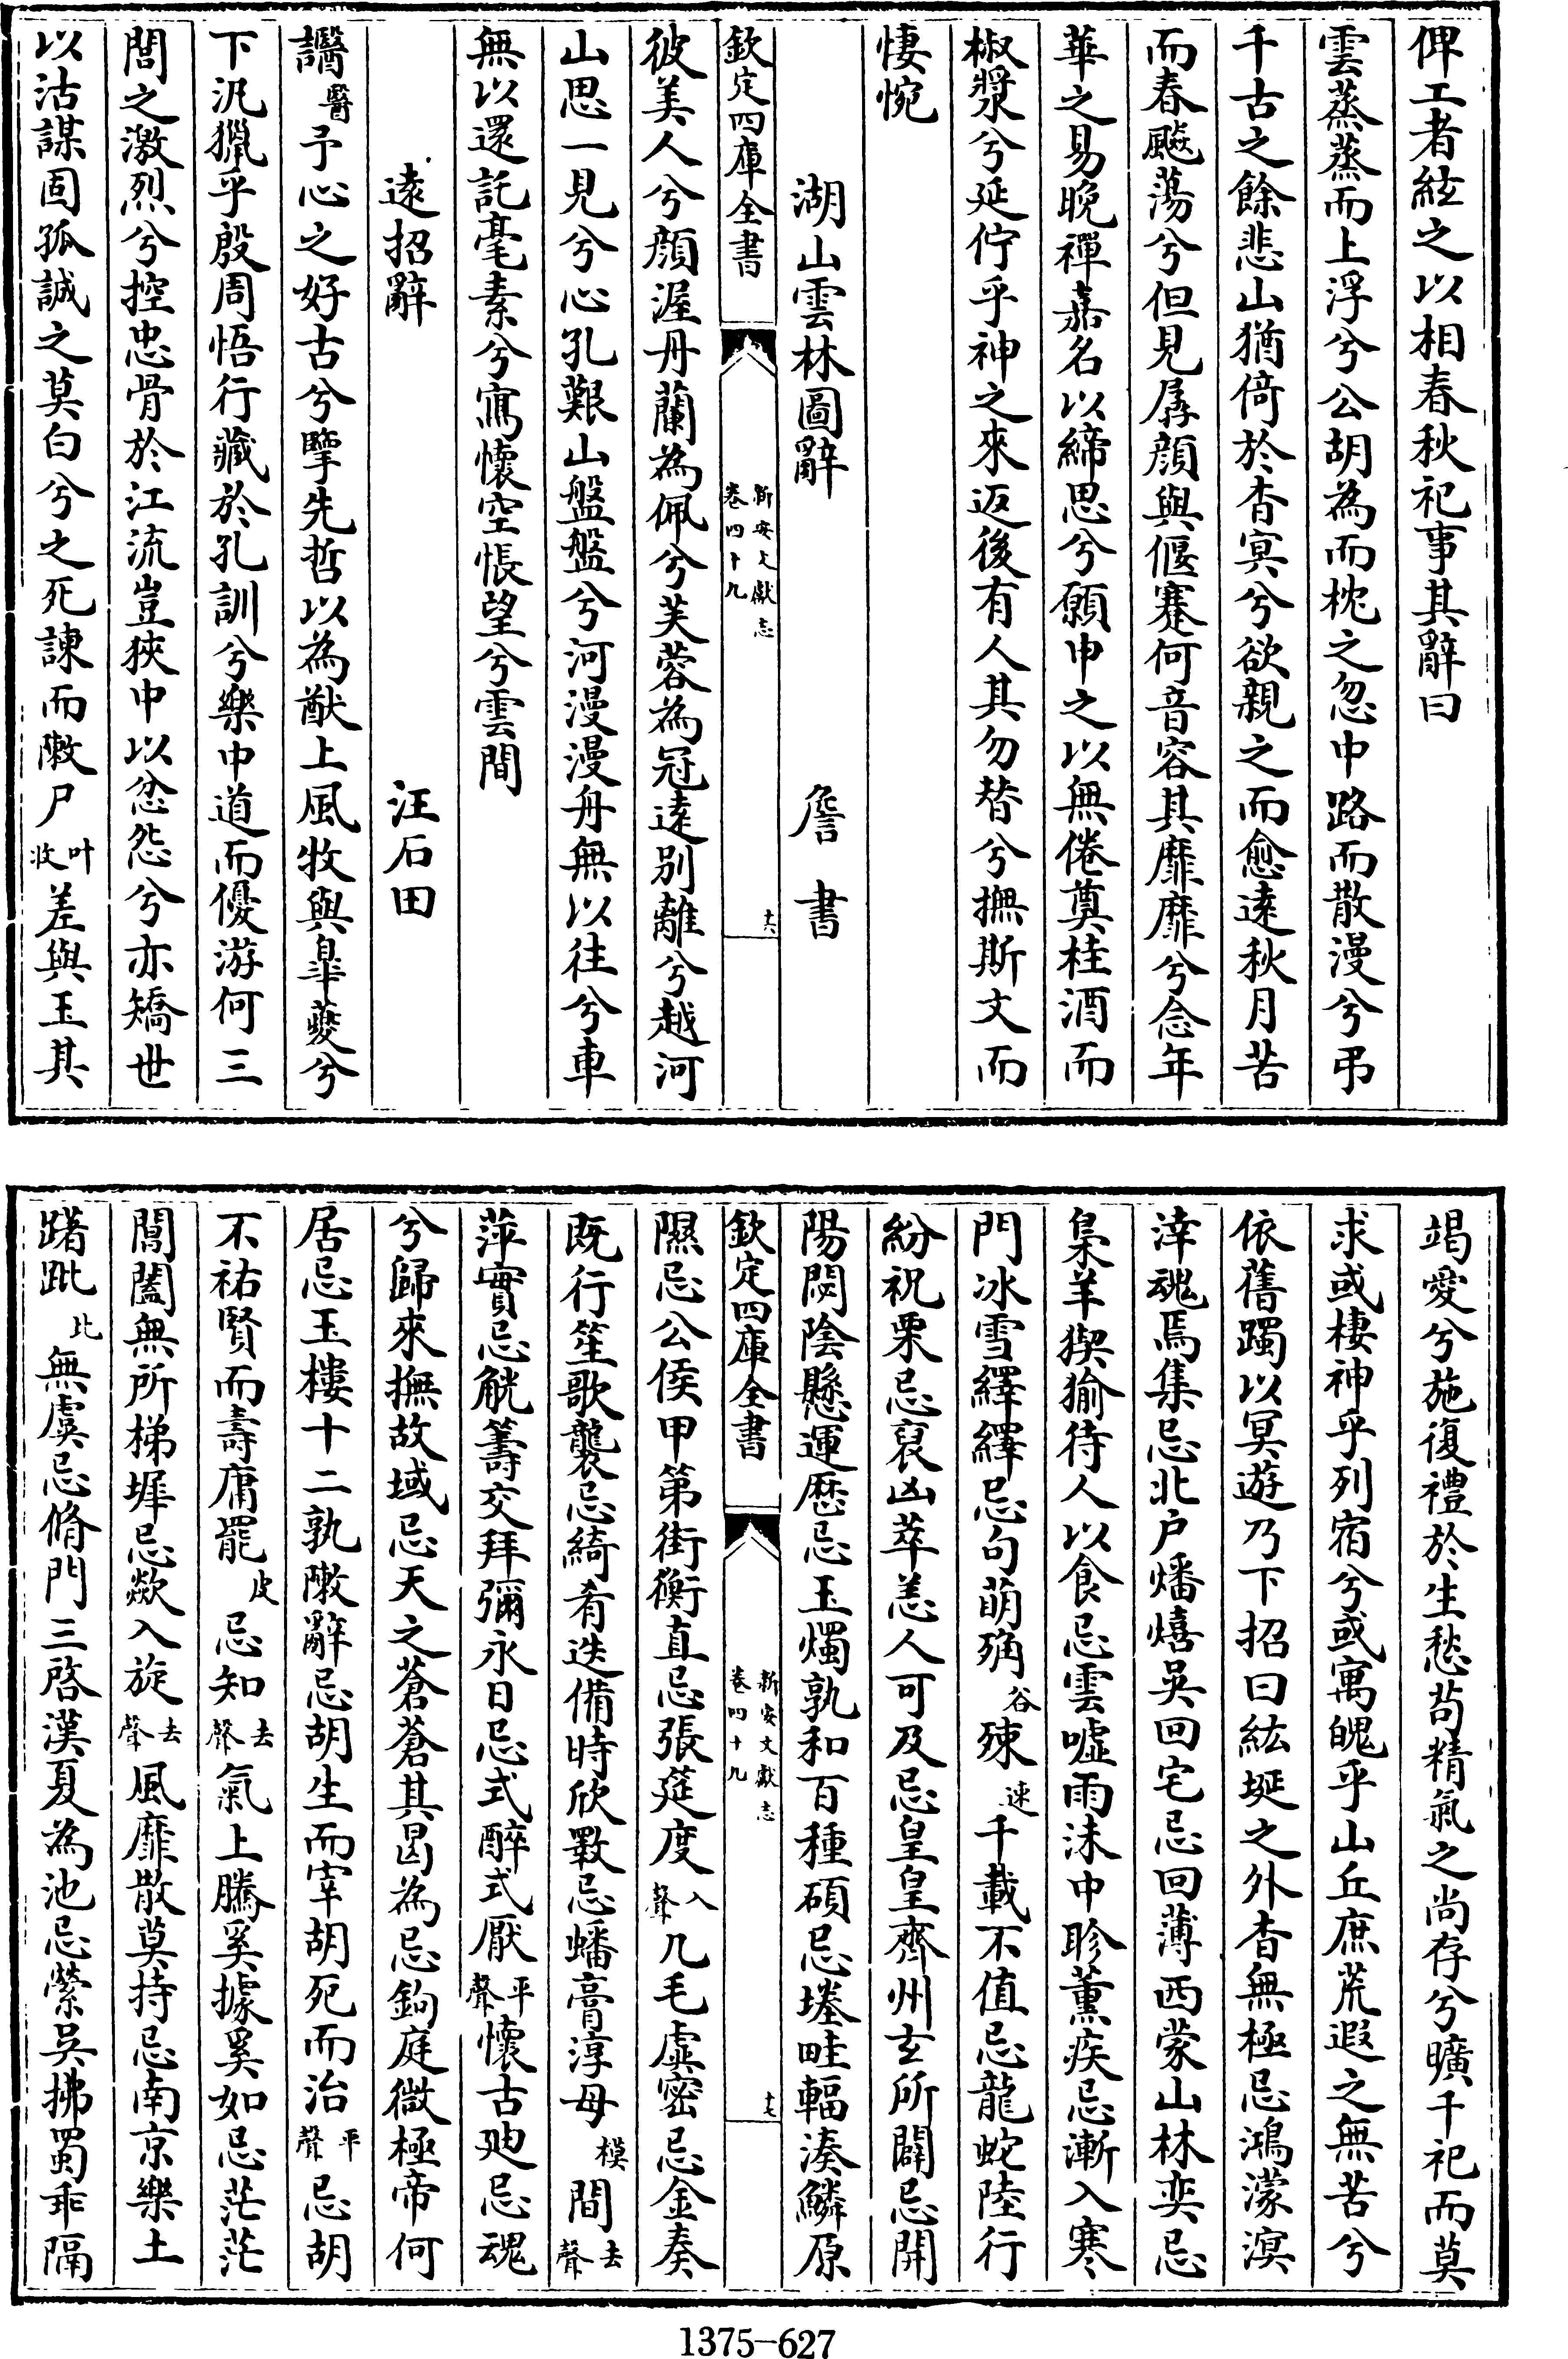 俾工者絃之以相春秋祀事其辭曰
雲蒸蒸而上浮兮公胡為而枕之忽中路而散漫兮弔
千古之餘悲山猶倚於杳冥兮欲親之而愈遠秋月苦
而春颷蕩兮但見孱顔與偃蹇何音容其靡靡兮念年
華之易晚禪嘉名以締思兮願申之以無倦奠桂酒而
椒漿兮延佇乎神之來返後有人其勿替兮撫斯文而
悽惋
湖山雲林圖辭 詹書
欽定四庫全書 新安文獻志 卷四十九 十六
彼美人兮顔渥丹蘭為佩兮芙蓉為冠遠别離兮越河
山思一見兮心孔艱山盤盤兮河漫漫舟無以往兮車
無以還託毫素兮寫懷空悵望兮雲間
遠招辭 汪石田
譩醫予心之好古兮擥先哲以為猷上風牧與臯夔兮
下汎獵乎殷周悟行藏於孔訓兮樂中道而優游何三
閭之激烈兮控忠骨於江流豈狹中以忿怨兮亦矯世
以沽謀固孤誠之莫白兮之死諫而敶尸叶收差與玉其
竭愛兮施復禮於生愁苟精氣之尚存兮曠千祀而莫
求或棲神乎列宿兮或寓魄乎山丘庶荒遐之無苦兮
依舊躅以冥遊乃下招曰紘埏之外杳無極忌鴻濛溟
涬魂焉集忌北户燔熺吳回宅忌回薄西蒙山林奕忌
梟羊猰㺄待人以食忌雲嘘雨沬中眕薰疾忌漸入寒
門冰雪繹繹忌句萌殈谷殐速千載不值忌龍蛇陸行
紛祝栗忌裒凶萃恙人可及忌皇皇齊州玄所闢忌開
陽閟陰懸運歴忌玉燭孰和百種碩忌塍畦輻湊鱗原
欽定四庫全書 新安文獻志 卷四十九 十七
隰忌公侯甲第街衡直忌張筵度入聲几毛虛密忌金奏
既行笙歌襲忌綺肴迭備時欣斁忌蟠膏淳母模間去聲
萍實忌觥籌交拜彌永日忌式醉式厭平聲懷古逈忌魂
兮歸來撫故域忌天之蒼蒼其曷為忌鉤庭微極帝何
居忌玉樓十二孰敶辭忌胡生而宰胡死而治平聲忌胡
不祐賢而壽庸罷皮忌知去聲氣上騰奚據奚如忌茫茫
閶闔無所梯墀忌歘入旋去聲風靡散莫持忌南京樂土
踷跐比無虞忌脩門三啓漢夏為池忌縈吳拂蜀乖隔
1375-627